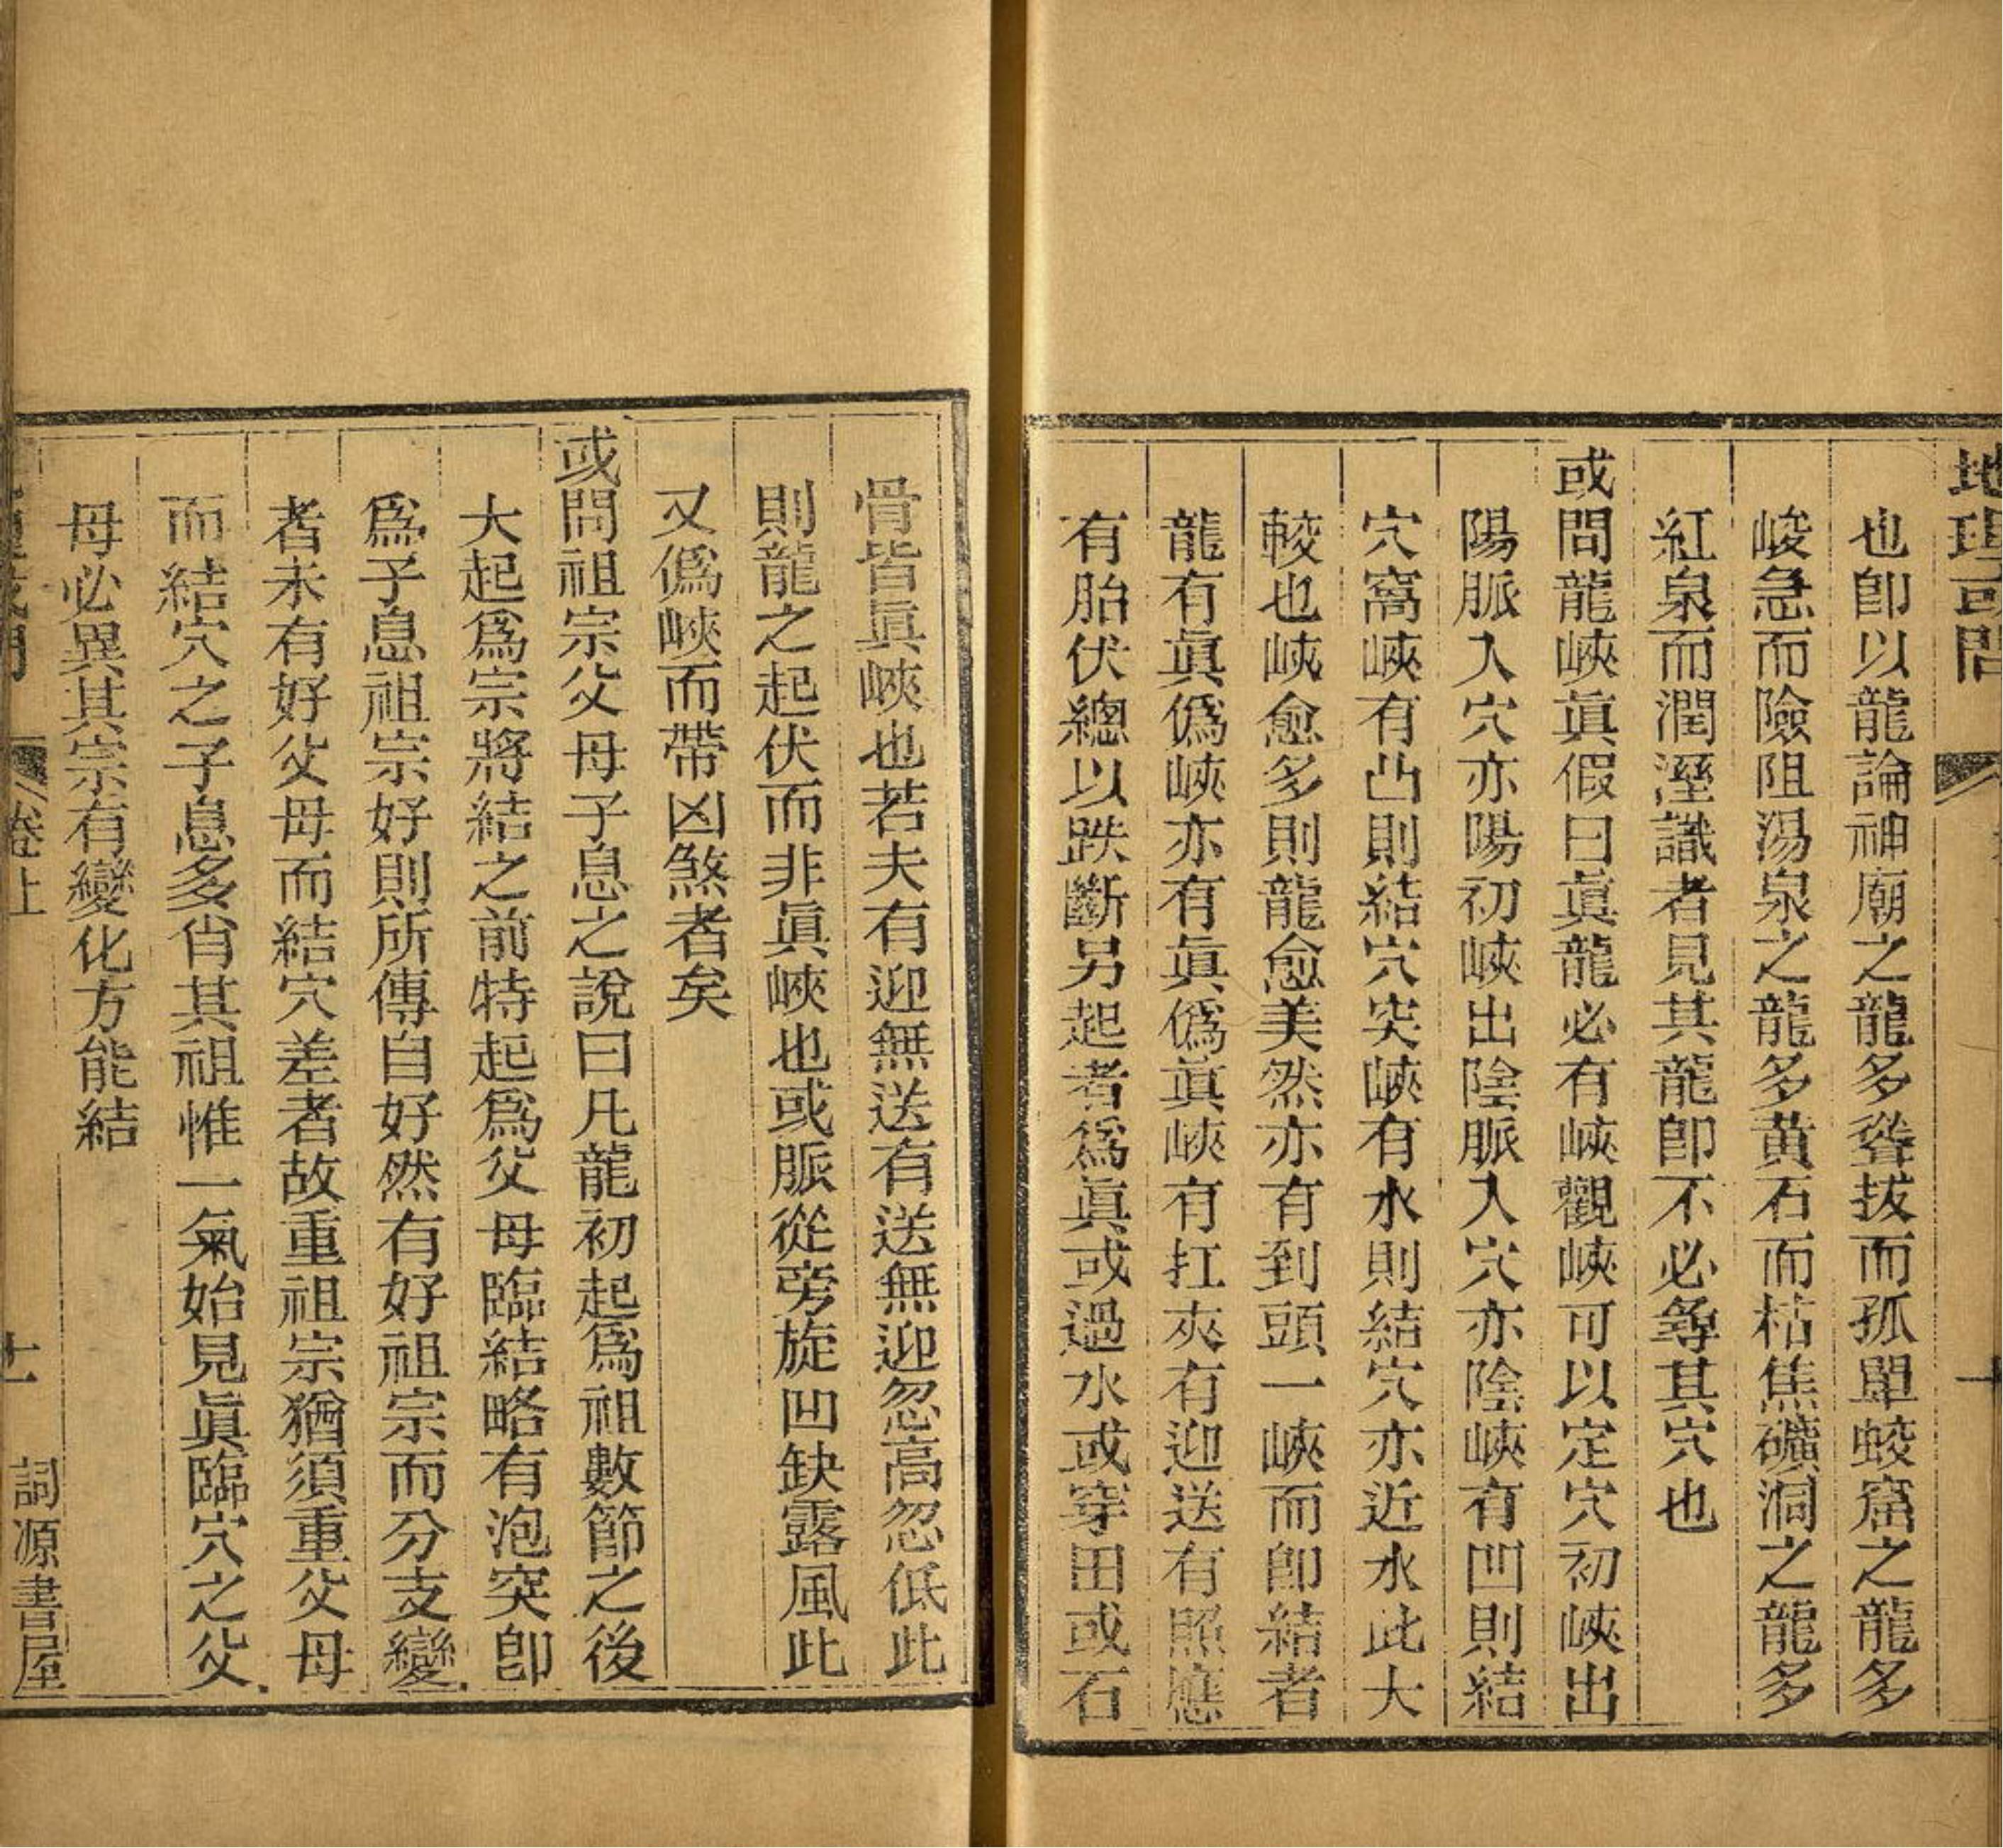 地理或問
也卽以龍論神廟之龍多聳拔而孤單蛟窟之龍多
峻急而險阻湯泉之龍多黃石而枯焦礦洞之龍多
紅泉而潤溼識者見其龍卽不必尋其穴也
或問龍峽眞假曰眞龍必有峽觀峽可以定穴初峽出
陽脈入穴亦陽初峽出陰脈入穴亦陰峽有凹則結
穴窩峽有凸則結穴突峽有水則結穴亦近水此大
較也峽愈多則龍愈美然亦有到頭一峽而卽結者
龍有眞僞峽亦有眞僞眞峽有扛夾有迎送有照應
有胎伏總以跌斷另起者爲眞或過水或穿田或石
骨皆眞峽也若夫有迎無送有送無迎忽高忽低此
則龍之起伏而非眞峽也或脈從旁旋凹缺露風此
又僞峽而帶凶煞者矣
或問祖宗父母子息之說曰凡龍初起爲祖數節之後
大起爲宗將結之前特起爲父母臨結略有泡突卽
爲子息祖宗好則所傳自好然有好祖宗而分支變
者未有好父母而結穴差者故重祖宗猶須重父母
而結穴之子息多肖其祖惟一氣始見眞臨穴之父
母必異其宗有變化方能結
卷上
十一
詞源書屋